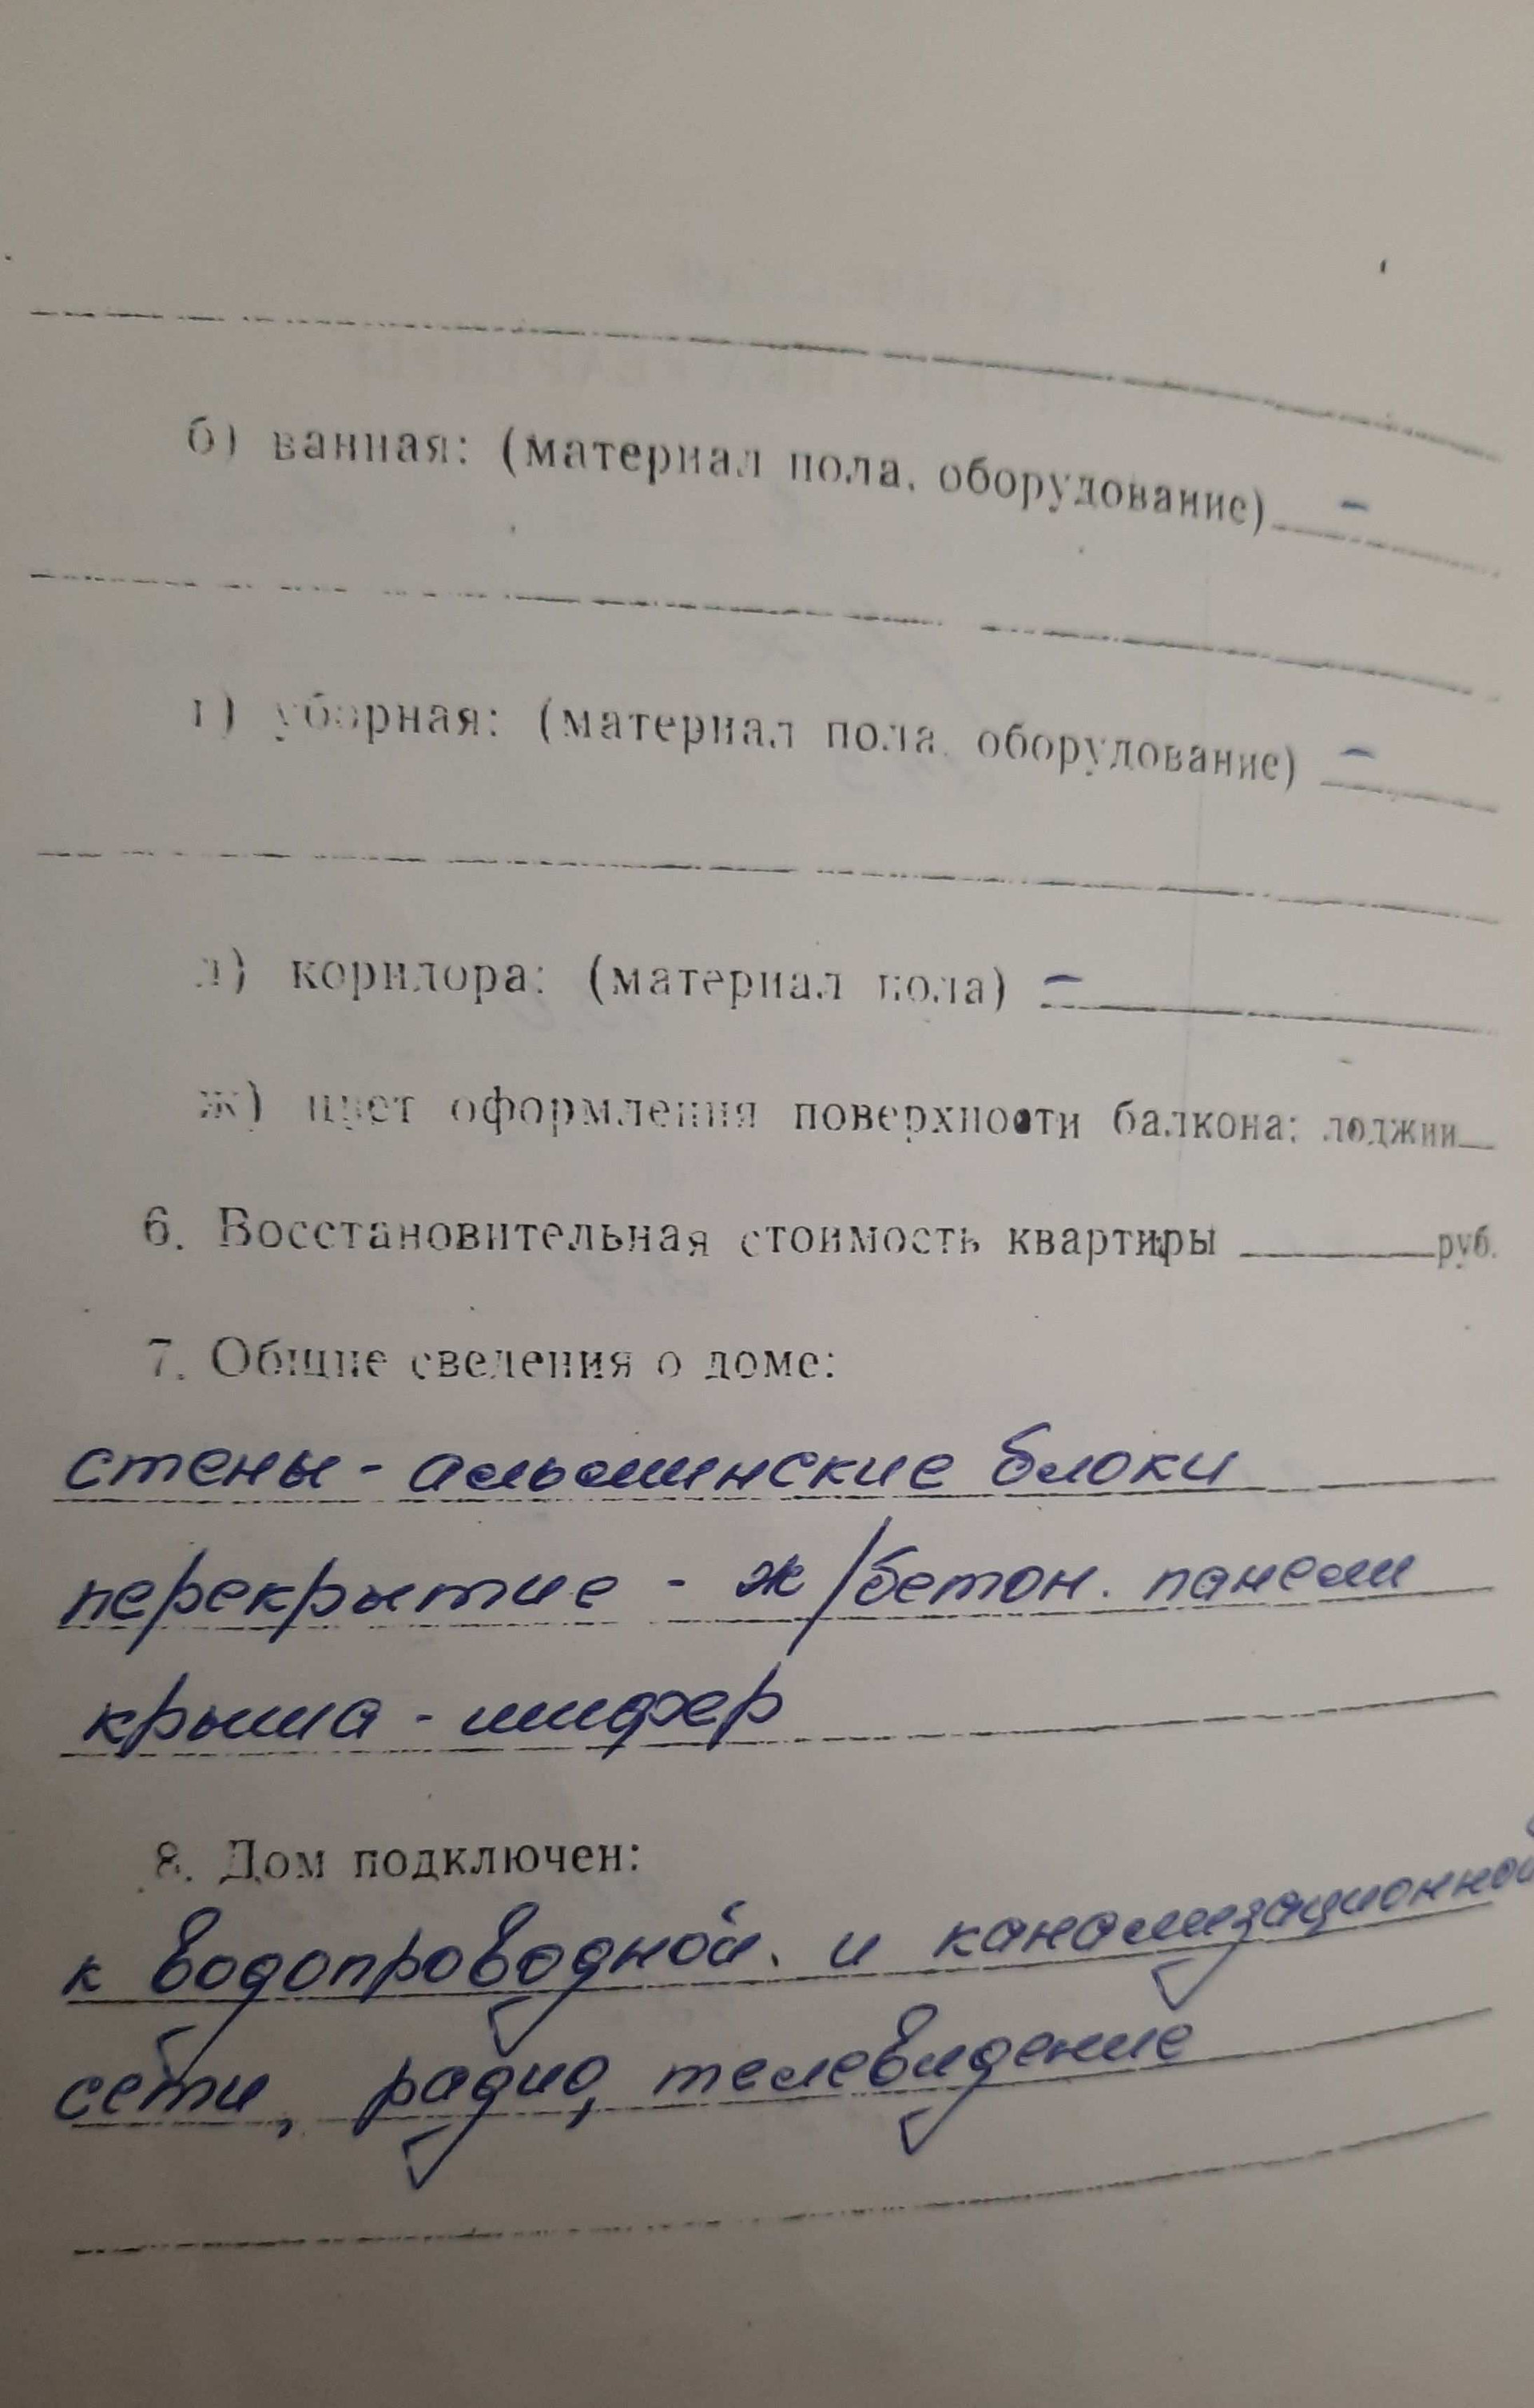 б) ванная: (материал пола, оборудование) -
г) уборная: (материал пола, оборудование) -
д) коридора: (материал пола) -
ж) цвет оформления поверхности балкона: лоджии
6. Восстановительная стоимость квартиры ______ руб.
7. Общие сведения о доме:
стены - альминские блоки
перекрытие - ж/бетон. панели
крыша - шифер
8. Дом подключен:
к водопроводной. и канализационной
сети, радио, телевидение